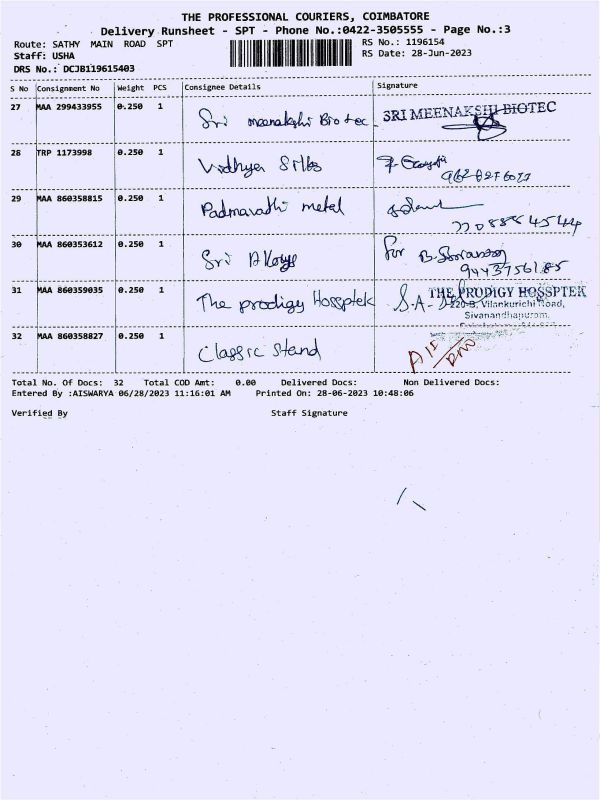 THE PROFESSIONAL COURIERS, COIMBATORE
Delivery Runsheet - SPT - Phone No.:0422-3505555 - Page No.:3
Route: SATHY MAIN ROAD SPT
RS No.: 1196154
Staff: USHA
RS Date: 28-Jun-2023
DRS No.: DCJB119615403
S No Consignment No Weight PCS Consignee Details Signature
27 MAA 299433955 0.250 1 Sri meenakshi Biotec SRI MEENAKSHI BIOTEC
28 TRP 1173998 0.250 1 Vidhya Silks
29 MAA 860358815 0.250 1 Padmavathi metal
30 MAA 860353612 0.250 1 Sri for B.
9443756185
31 MAA 860359035 0.250 1 The prodigy Hossptek S.A- THE PRODIGY HOSSPTEK
220-B, Vilankurichi Road,
Sivanandhapuram,
32 MAA 860358827 0.250 1 Classic Stand
Total No. Of Docs: 32 Total COD Amt: 0.00 Delivered Docs: Non Delivered Docs:
Entered By :AISWARYA 06/28/2023 11:16:01 AM Printed On: 28-06-2023 10:48:06
Verified By Staff Signature